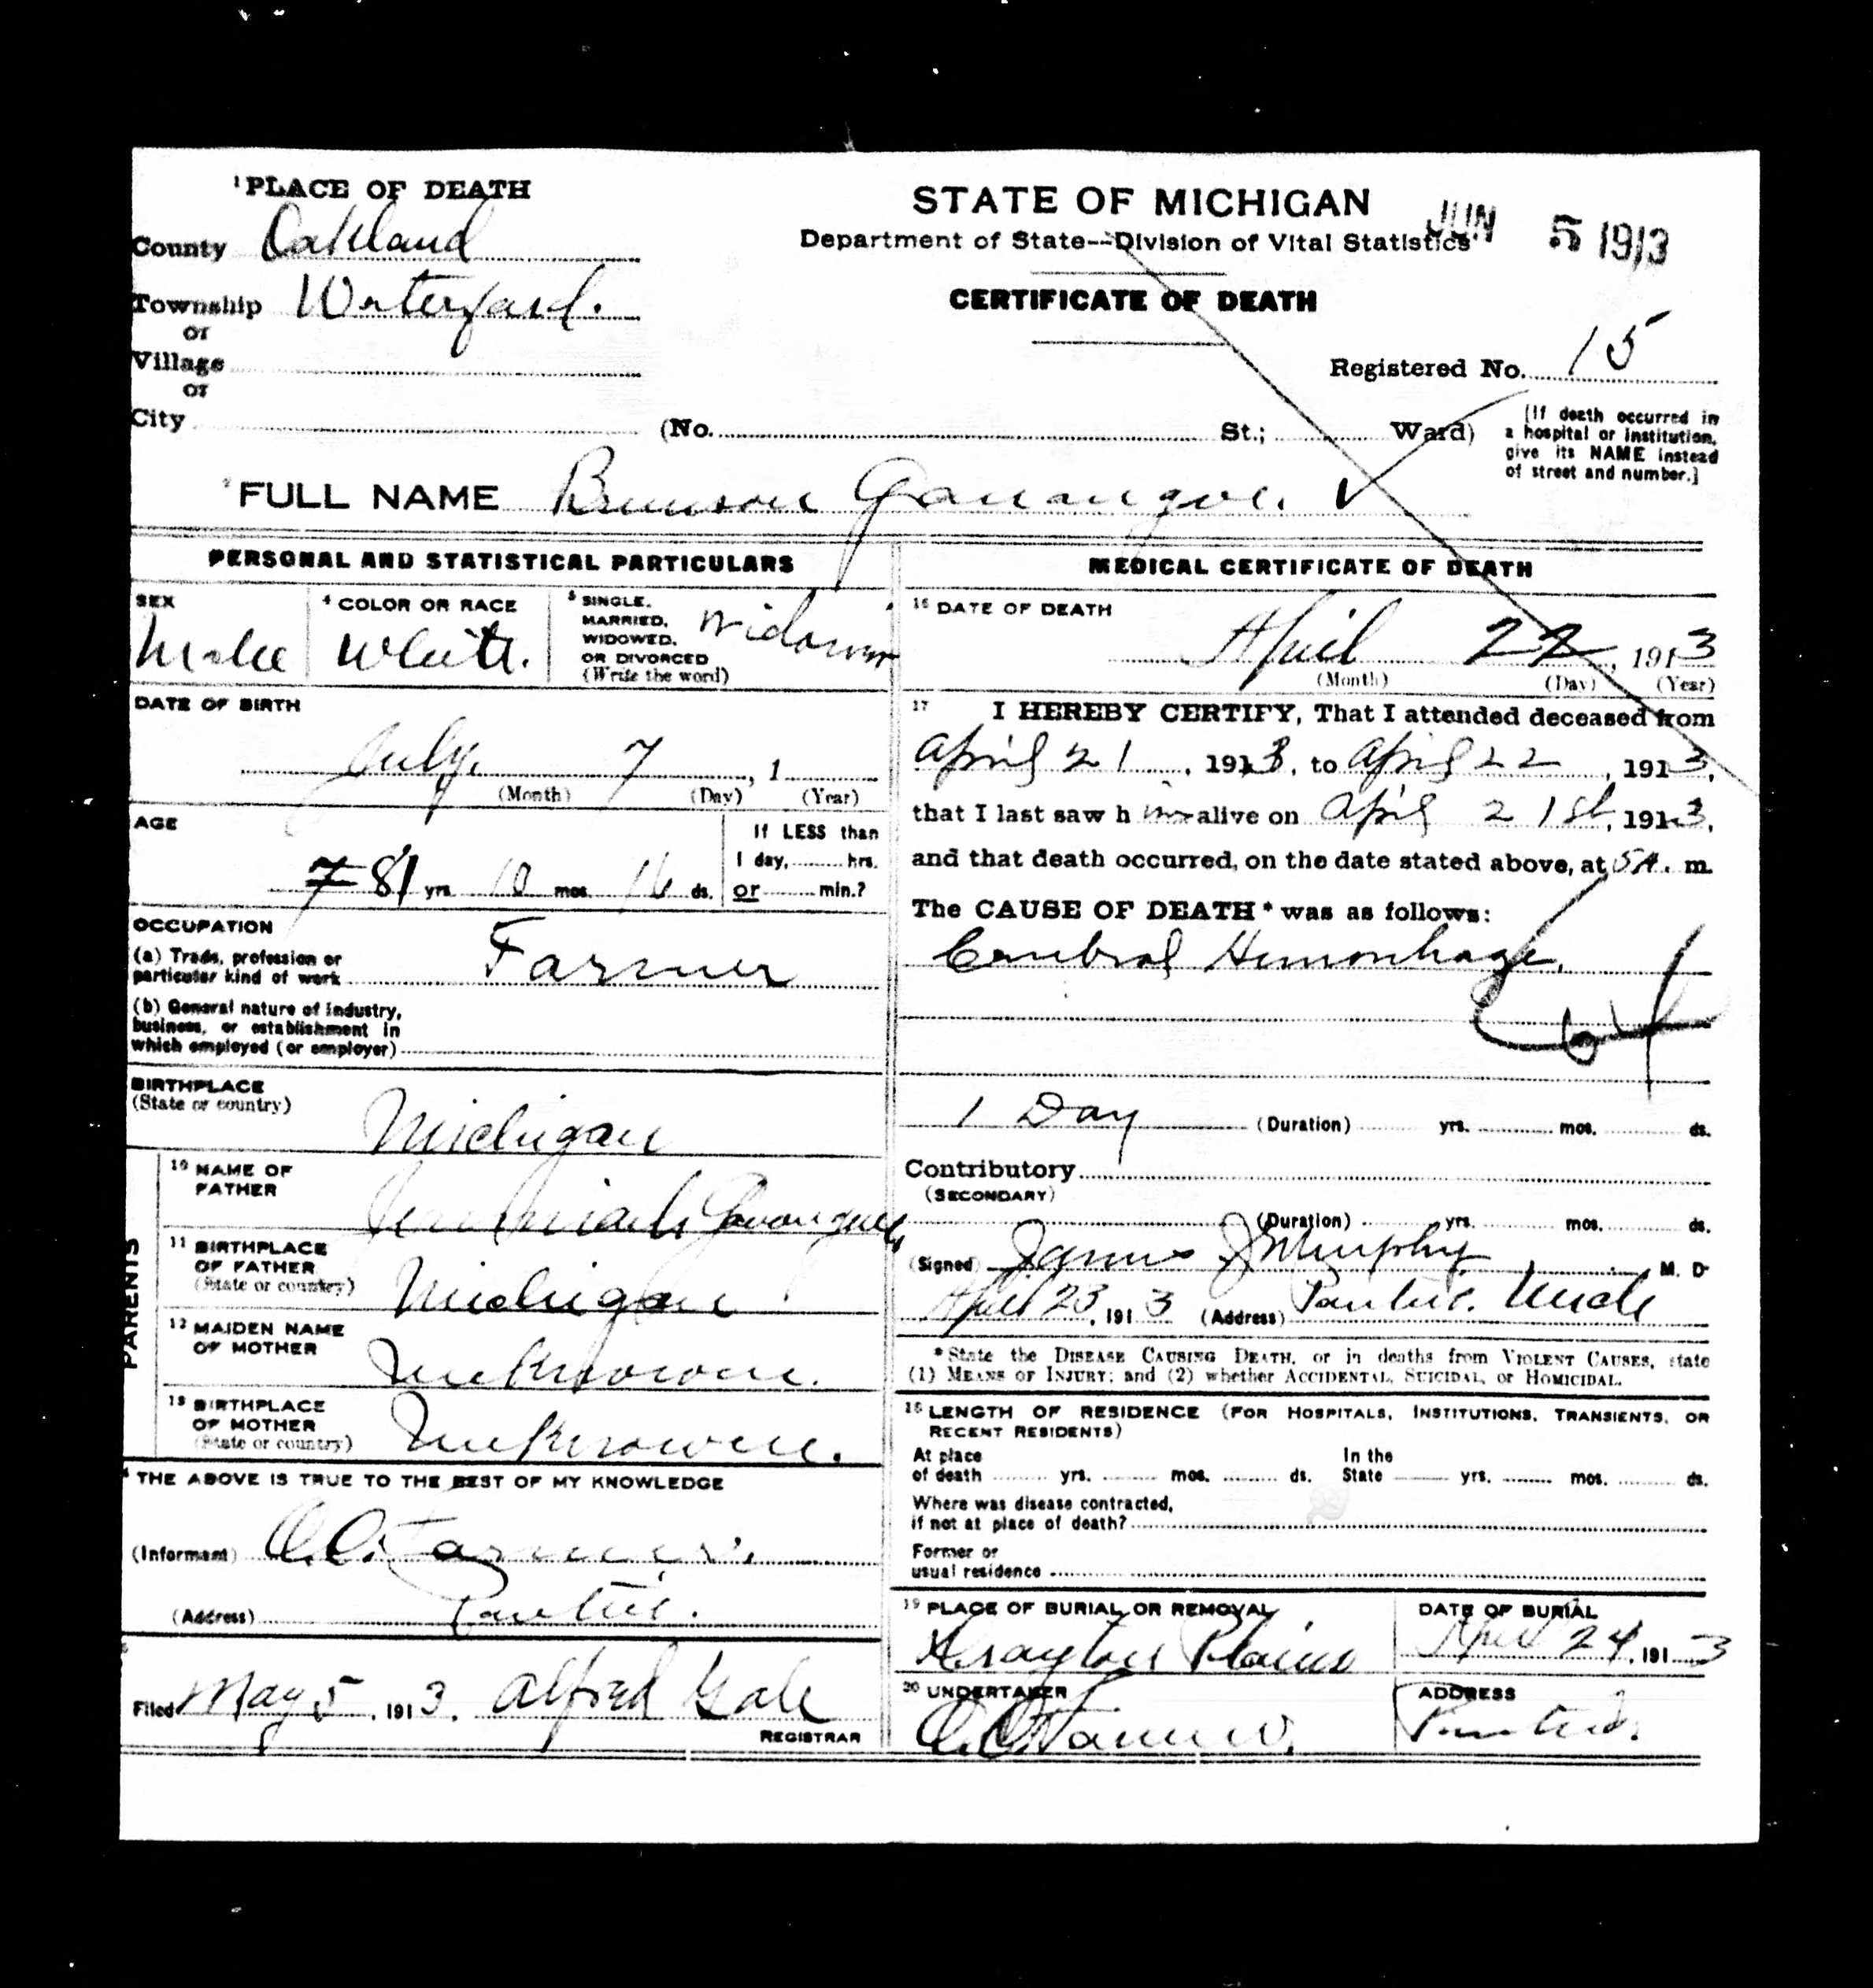 ¹PLACE OF DEATH
County Oakland
Township Waterford.
or
Village
or
City
STATE OF MICHIGAN
Department of State--Division of Vital Statistics
JUN 5 1913
CERTIFICATE OF DEATH
Registered No. 15
(No. St.; Ward)
[If death occurred in
a hospital or institution,
give its NAME instead
of street and number.]
²FULL NAME Brunson
PERSONAL AND STATISTICAL PARTICULARS
SEX
Male
⁴ COLOR OR RACE
White.
⁵ SINGLE,
MARRIED,
WIDOWED,
OR DIVORCED
(Write the word)
Widower
DATE OF BIRTH
July 7, 1
(Month) (Day) (Year)
AGE
7 81 yrs. 10 mos. 16 ds.
If LESS than
1 day, hrs.
or min.?
OCCUPATION
(a) Trade, profession or
particular kind of work Farmer
(b) General nature of industry,
business, or establishment in
which employed (or employer)
BIRTHPLACE
(State or country)
Michigan
PARENTS
¹⁰ NAME OF
FATHER
¹¹ BIRTHPLACE
OF FATHER
(State or country)
Michigan
¹² MAIDEN NAME
OF MOTHER
Unknown.
¹³ BIRTHPLACE
OF MOTHER
(State or country)
Unknown.
THE ABOVE IS TRUE TO THE BEST OF MY KNOWLEDGE
(Informant) O.C. Farmer.
(Address) Pontiac.
Filed May 5, 1913. Alfred Gale
REGISTRAR
MEDICAL CERTIFICATE OF DEATH
¹⁶ DATE OF DEATH
April 22, 1913
(Month) (Day) (Year)
¹⁷ I HEREBY CERTIFY, That I attended deceased from
April 21, 1913, to April 22, 1913,
that I last saw him alive on April 21st, 1913,
and that death occurred, on the date stated above, at 5A. m.
The CAUSE OF DEATH* was as follows:
Cerebral Hemorrhage.
64
1 Day (Duration) yrs. mos. ds.
Contributory
(SECONDARY)
(Duration) yrs. mos. ds.
(Signed) James J Murphy M. D.
April 23, 1913 (Address) Pontiac. Mich
*State the DISEASE CAUSING DEATH, or in deaths from VIOLENT CAUSES, state
(1) MEANS OF INJURY; and (2) whether ACCIDENTAL, SUICIDAL, or HOMICIDAL.
¹⁸ LENGTH OF RESIDENCE (FOR HOSPITALS, INSTITUTIONS, TRANSIENTS, OR
RECENT RESIDENTS)
At place
of death yrs. mos. ds.
In the
State yrs. mos. ds.
Where was disease contracted,
if not at place of death?
Former or
usual residence
¹⁹ PLACE OF BURIAL OR REMOVAL
Drayton Plains
DATE OF BURIAL
April 24, 1913
²⁰ UNDERTAKER
O.C. Farmer.
ADDRESS
Pontiac.